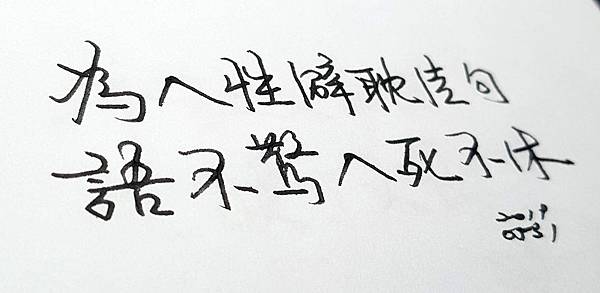 為人性僻耽佳句
語不驚人死不休
2019
0531